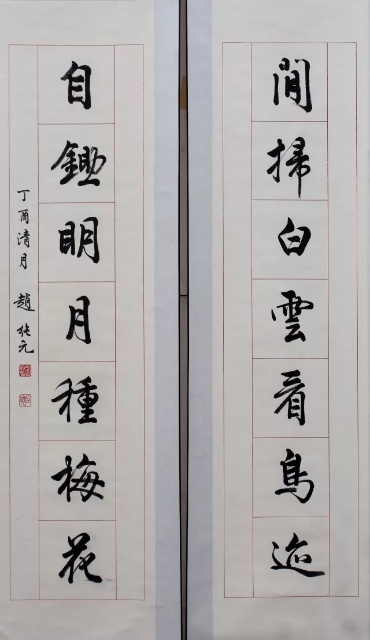 閒掃白雲看鳥迹
自鋤明月種梅花
丁酉清月 趙
元